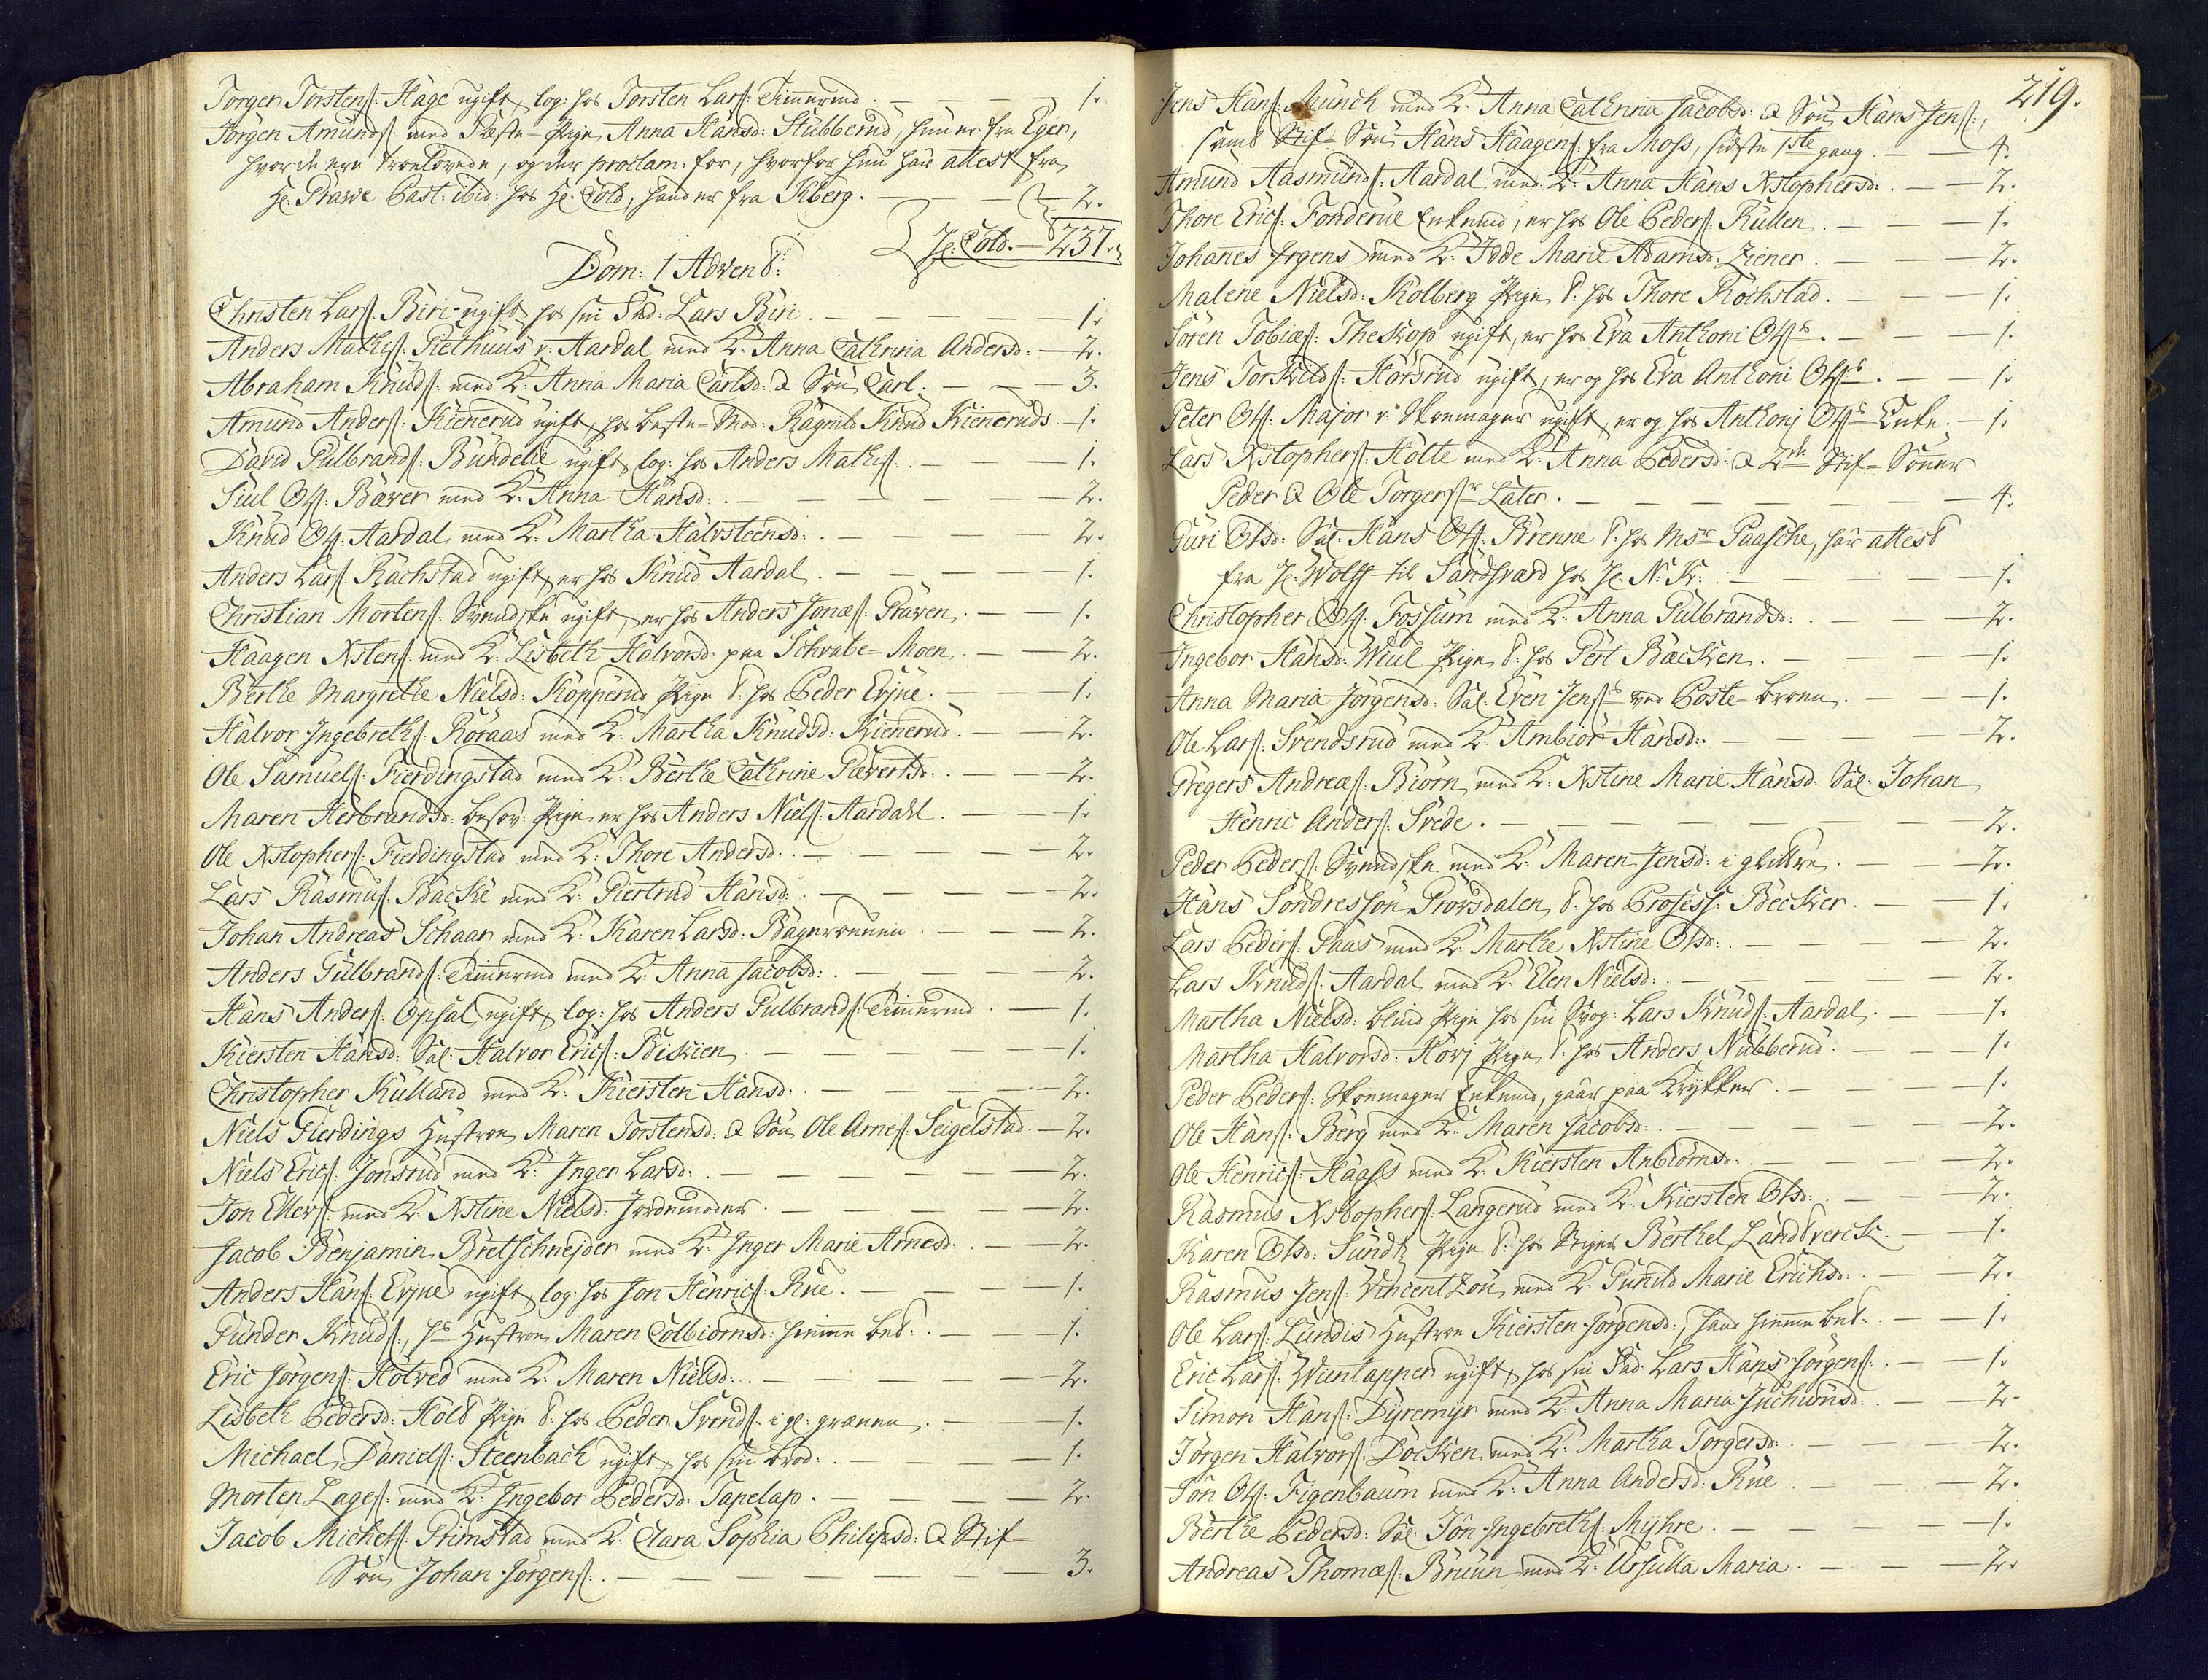 Torger Torstens: Hage ugift, log: hos Torsten Lars: Timermd. — 1.
Jörgen Amunds: med Fæste-Pige Anna Hansd: Stubberud, hun er fra Eger,
hvor de ere troelovede, og der proclam: for, hvorfor hun har attest fra
Hr. Past: ibid: hos Hr. Cold, hand er fra Kberg. — 2.
Hr. Cold. — 237.
Dom: 1 Advent:
Christen Lars: Biri ugift hos sin Fad: Lars Biri. — 1.
Anders Mathis: Giethuus v: Aardal med K: Anna Cathrina Andersd: — 2.
Abraham Knuds: med K: Anna Maria Carlsd: & Søn Carl. — 3.
Amund Anders: Kiennerud ugift, hos beste-Mod: Ragnild Knud Kienneruds. — 1.
David Gulbrands: Bundelie ugift, log: hos Anders Mathis: — 1.
Siul Ols: Bæver med K: Anna Hansd: — 2.
Knud Ols: Aardal, med K: Martha Halvsteensd: — 2.
Anders Lars: Rachstad ugift, er hos Knud Aardal. — 1.
Christian Mortens: Svendske ugift, er hos Anders Jonæs: Graven. — 1.
Haagen Xstens: med K: Lisbeth Halvorsd: paa Schrabe-Moen. — 2.
Berthe Margrethe Nielsd: Kopperud Pige t: hos Peder Evjue. — 1.
Halvor Ingebreths: Röraas med K: Martha Knudsd: Kiennerud. — 2.
Ole Samuels: Fierdingstad med K: Berthe Cathrine Gevertsd: — 2.
Maren Herbrandsd: besov: Pige er hos Anders Niels: Aardahl. — 1.
Ole Xstophers: Fierdingstad med K: Thore Andersd: — 2.
Lars Rasmus: Backe med K: Giertrud Hansd: — 2.
Johan Andreas Schaar med K: Karen Larsd: — 2.
Anders Gulbrands: Timermd med K: Anna Jacobsd: — 2.
Hans Anders: Opsal, ugift, log: hos Anders Gulbrands: Timermd. — 1.
Kiersten Hansd: Sal: Halvor Erics: Biskien. — 1.
Christopher Kulland med K: Kiersten Hansd: — 2.
Niels Fierdings Hustroe, Maren Torstensd: & Søn Ole Arnes: Seigelstad. — 2.
Niels Erics: Jonsrud med K: Inger Larsd: — 2.
Jon Ellers: med K: Xstine Nielsd: Jordemoder. — 2.
Jacob Benjamin Bretschnejder med K: Inger Marie Arnesd: — 2.
Anders Hans: Evjue ugift, log: hos Jon Henrics: Rue. — 1.
Gunder Knuds:, hs Hustroe Maren Colbiörnsd: hiemme bet: — 1.
Eric Jörgens: Hotved med K: Maren Nielsd: — 2.
Lisbeth Pedersd: Holt Pige t: hos Peder Svends: i gl: — 1.
Michael Daniels: Steenbach ugift, hos sin brod: — 1.
Morten Lages: med K: Ingebor Pedersd: Tapelap. — 2.
Jacob Michels: Grimstad med K: Clara Sophia Philipsd: & Stif-
Søn Johan Jörgens: — 3.
219.
Jens Hans: Munch med K: Anna Cathrina Jacobsd: & Søn Hans Jens:,
samt Stif-Søn Hans Haagens: fra Moss, sidste 1ste gang. — 4.
Amund Aasmunds: Aardal, med K: Anna Hans Xstophersd: — 2.
Thore Erics: Fonderue Enkemd, er hos Ole Peders: Rullen. — 1.
Johannes Irgens med K: Idde Marie Adamsd: Ziener. — 2.
Malene Nielsd: Kolberg Pige t: hos Thore Rochstad. — 1.
Sören Tobiæs: Theskop ugift, er hos Eva Anthoni Ols: — 1.
Jens Torkilds: Horsrud ugift, er og hos Eva Anthoni Ols: — 1.
Peter Ols: Major v: Skoemager ugift, er og hos Anthonj Ols: Enke. — 1.
Lars Xstophers: Holte med K: Anna Pedersd: & 2de Stif-Sönner
Peder & Ole Torgers: Later. — 4.
Guri Olsd: Sal: Hans Ols: Brenne t: hos Msr Paasche, har attest
fra Hr. Wolff til Sandsværd hos Hr. N: K: — 1.
Christopher Ols: Fossum med K: Anna Gulbrandsd: — 2.
Ingebor Hansd: Wiul Pige t: hos Gert Bæcken. — 1.
Anna Maria Jörgensd: Sal: Even Jens: ved Poste-broen. — 1.
Ole Lars: Svendsrud med K: Ambiör Hansd: — 2.
Gregers Andreæs: Biörn, med K: Xstine Marie Hansd: Sal: Johan
Henric Anders: Svede. — 2.
Peder Peders: Svendske med K: Maren Jensd: i glittre. — 2.
Hans Sondressön Provsdalen t: hos Profess: Becker. — 1.
Lars Peders: Gaas med K: Marthe Xstine Olsd: — 2.
Lars Knuds: Aardal, med K: Elen Nielsd: — 2.
Martha Nielsd: blind Pige hos sin Svog: Lars Knuds: Aardal. — 1.
Martha Halvorsd: Hovj Pige t: hos Anders Nubberud. — 1.
Peder Peders: Skoemager Enkemd, gaar paa Krykker. — 1.
Ole Hans: Berg med K: Maren Jacobsd: — 2.
Ole Henrics: Haass med K: Kiersten Anbiörnsd: — 2.
Rasmus Xstophers: Langerud med K: Kiersten Olsd: — 2.
Karen Olsd: Sundt Pige t: hos Berthel Landtverck. — 1.
Rasmus Jens: Vincent Zon, med K: Gunild Marie Erichsd: — 2.
Ole Lars: Lundis Hustroe Kiersten Jörgensd:, hand hiemme bet: — 1.
Eric Lars: Wientapper ugift, hos sin Fad: Lars Hans Jörgens: — 1.
Simon Hans: Dyremyr med K: Anna Maria Juchumsd: — 2.
Jörgen Halvors: Docken, med K: Martha Torgersd: — 2.
Jon Ols: Figenbaum med K: Anna Andersd: Rue — 2.
Berthe Pedersd: Sal: Jon Ingebreths: Myhre. — 1.
Andreas Thomæs: Bruun med K: Ursulla Maria. — 2.